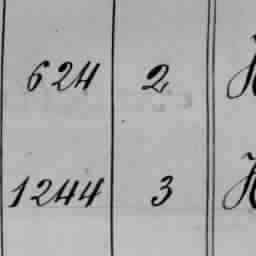 624 2
1244 3